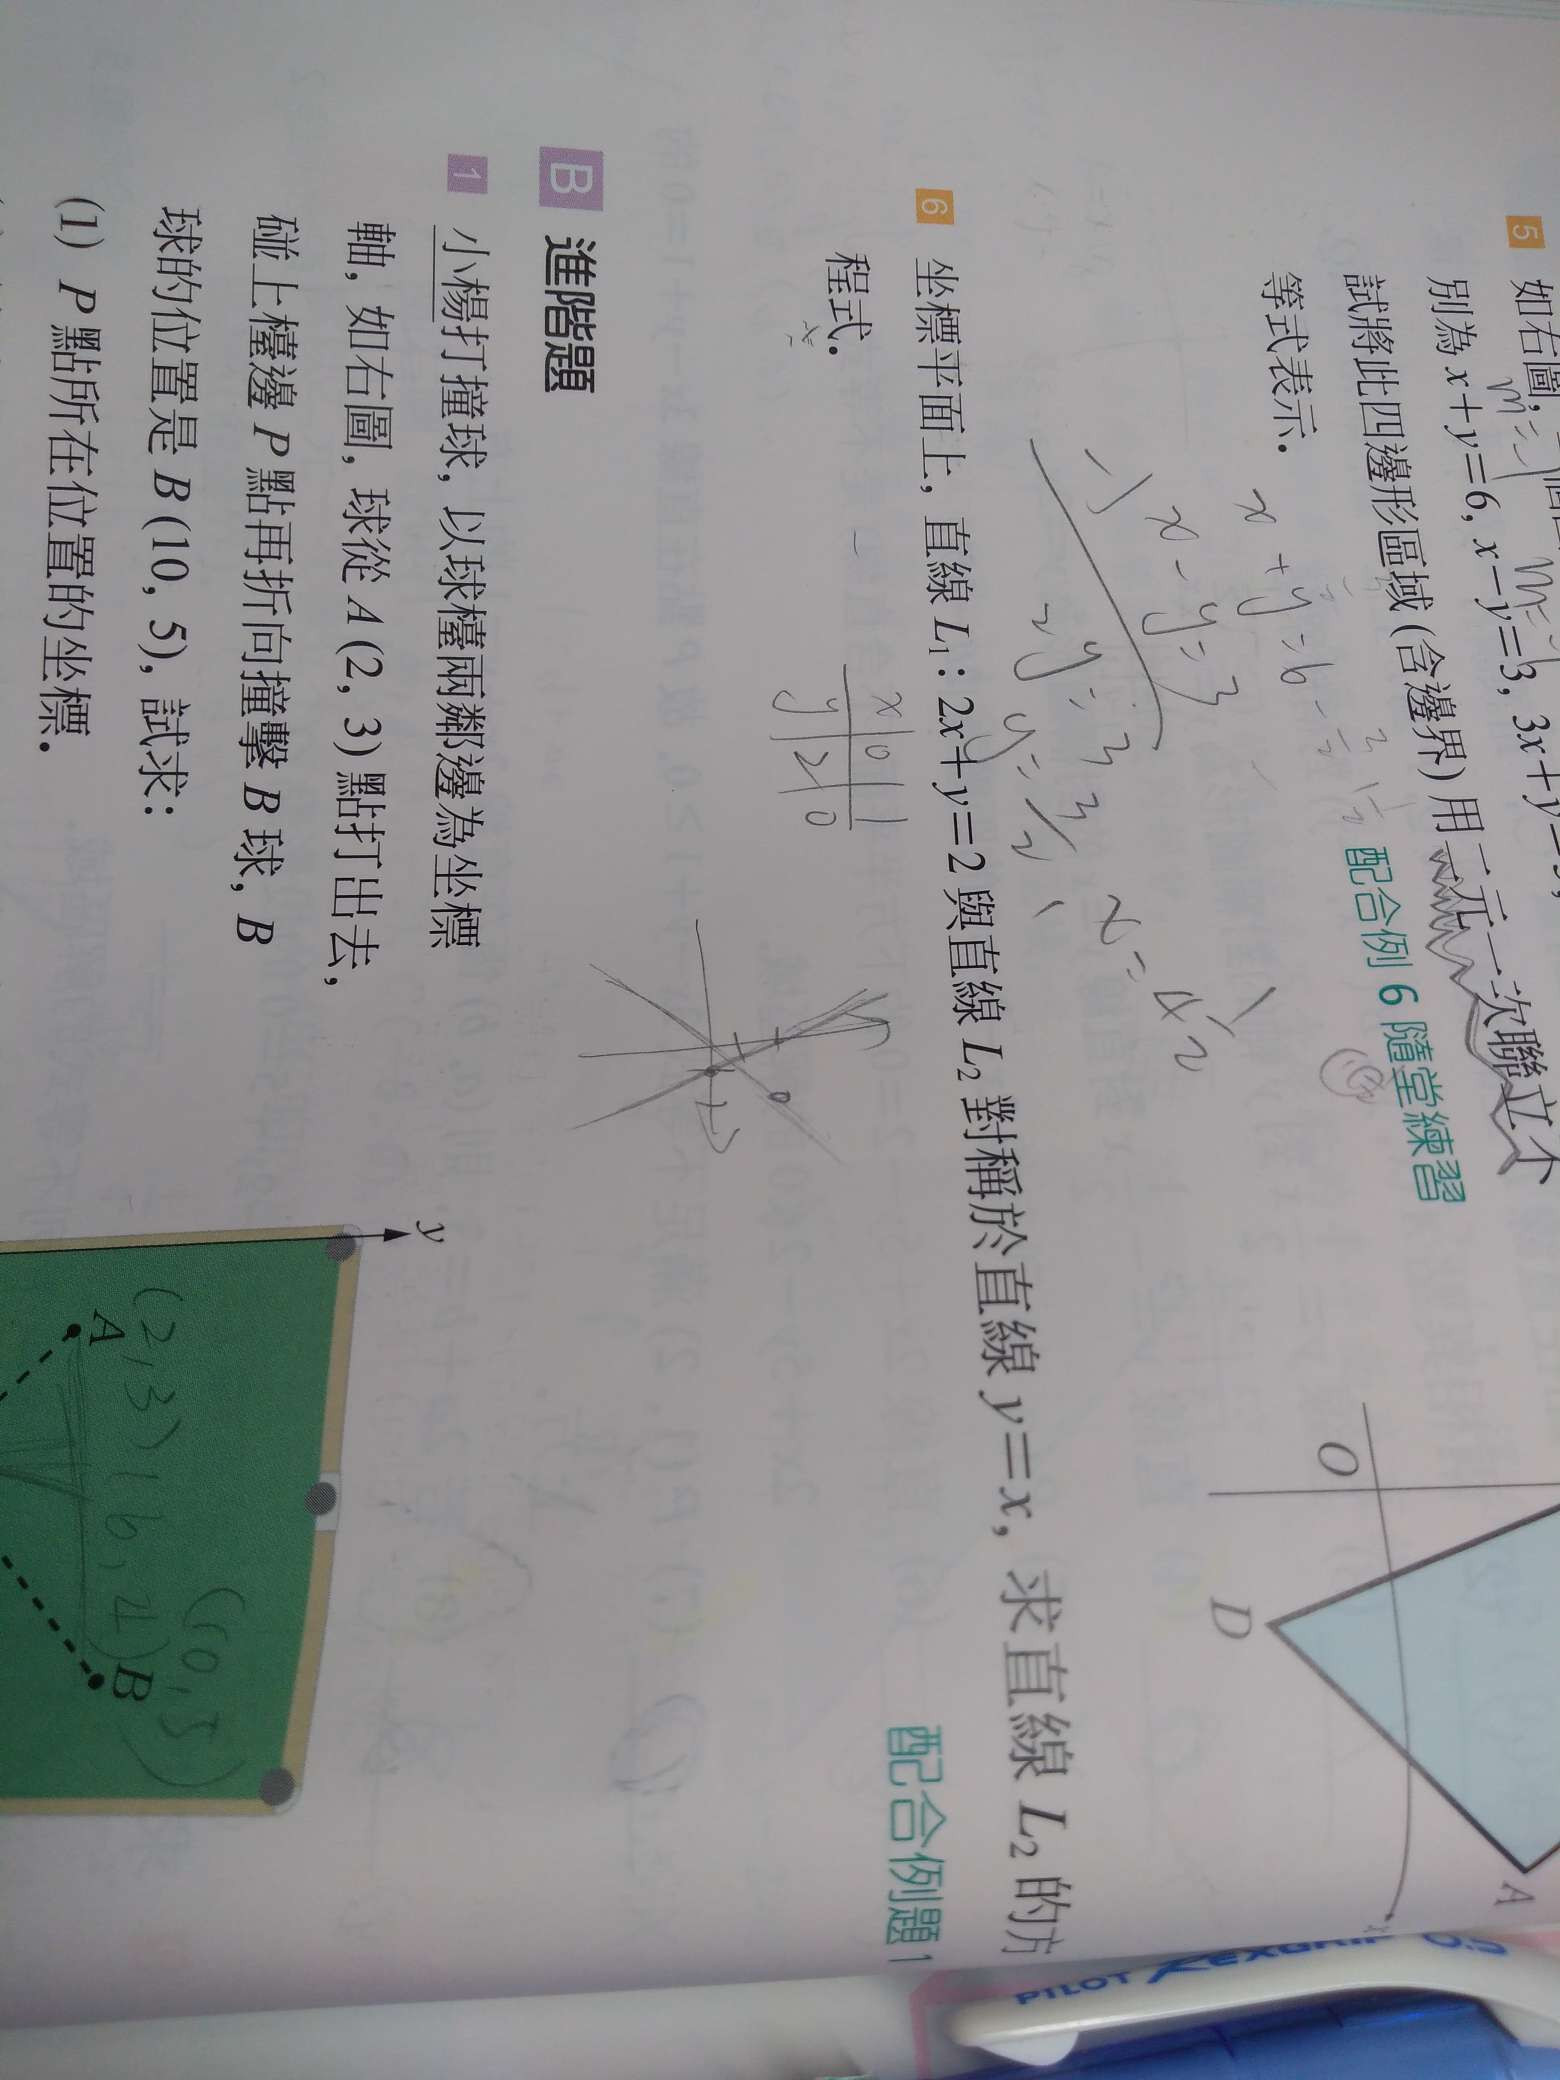 5 如右圖,
別為 x+y=6, x−y=3, 3x+y=
試將此四邊形區域 (含邊界) 用二元一次聯立不
等式表示.
配合例 6 隨堂練習
x+y=6
−) x−y=3
2y=3
O
D
A
6 坐標平面上, 直線 L₁: 2x+y=2 與直線 L₂ 對稱於直線 y=x, 求直線 L₂ 的方
程式.
配合例題1
x 0 1
y 2 0
B 進階題
1 小楊打撞球, 以球檯兩鄰邊為坐標
軸, 如右圖, 球從 A (2, 3) 點打出去,
碰上檯邊 P 點再折向撞擊 B 球, B
球的位置是 B (10, 5), 試求:
(1) P 點所在位置的坐標.
y
A
(2,3)
(6,4)
B
(10,5)
PILOT REXGRIP 0.5